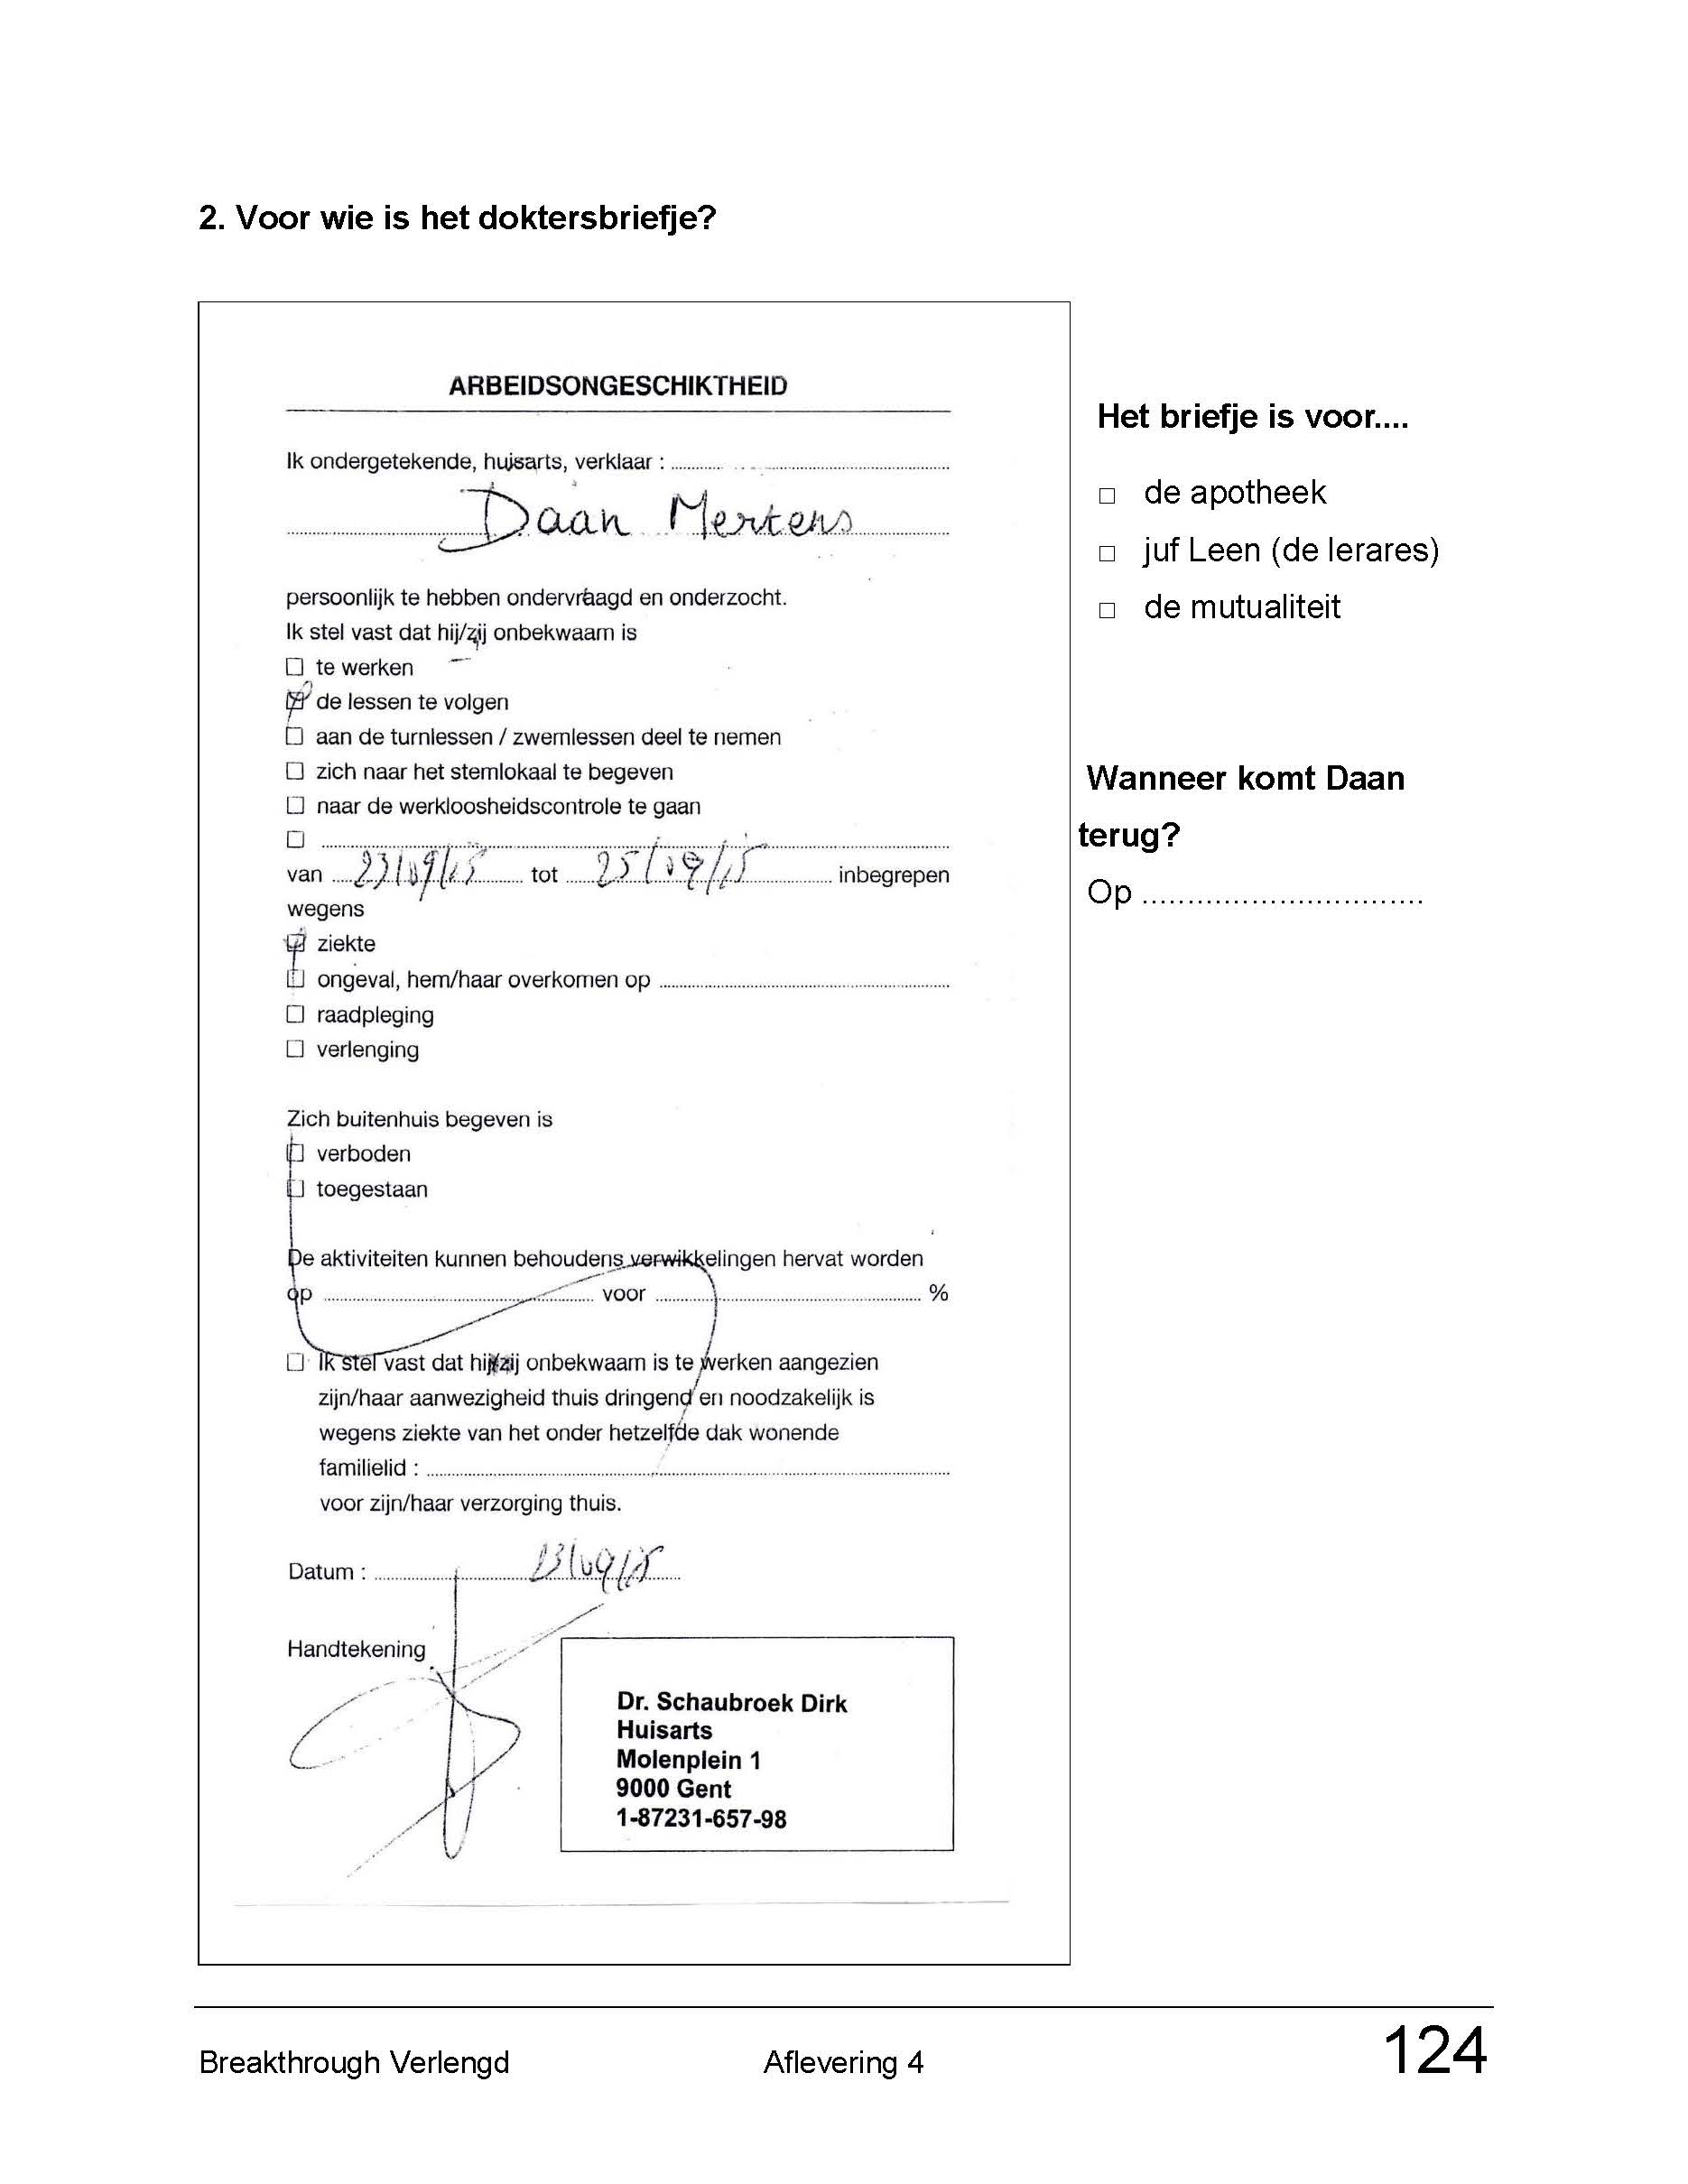 2. Voor wie is het doktersbriefje?
ARBEIDSONGESCHIKTHEID
Ik ondergetekende, huisarts, verklaar :
Daan Mertens
persoonlijk te hebben ondervraagd en onderzocht.
Ik stel vast dat hij/zij onbekwaam is
te werken
de lessen te volgen
aan de turnlessen / zwemlessen deel te nemen
zich naar het stemlokaal te begeven
naar de werkloosheidscontrole te gaan
van 23/09/15 tot 25/09/15 inbegrepen
wegens
ziekte
ongeval, hem/haar overkomen op
raadpleging
verlenging
Zich buitenhuis begeven is
verboden
toegestaan
De aktiviteiten kunnen behoudens verwikkelingen hervat worden
op voor %
Ik stel vast dat hij/zij onbekwaam is te werken aangezien
zijn/haar aanwezigheid thuis dringend en noodzakelijk is
wegens ziekte van het onder hetzelfde dak wonende
familielid :
voor zijn/haar verzorging thuis.
Datum : 23/09/15
Handtekening
Dr. Schaubroek Dirk
Huisarts
Molenplein 1
9000 Gent
1-87231-657-98
Het briefje is voor....
de apotheek
juf Leen (de lerares)
de mutualiteit
Wanneer komt Daan
terug?
Op ...............................
Breakthrough Verlengd Aflevering 4 124